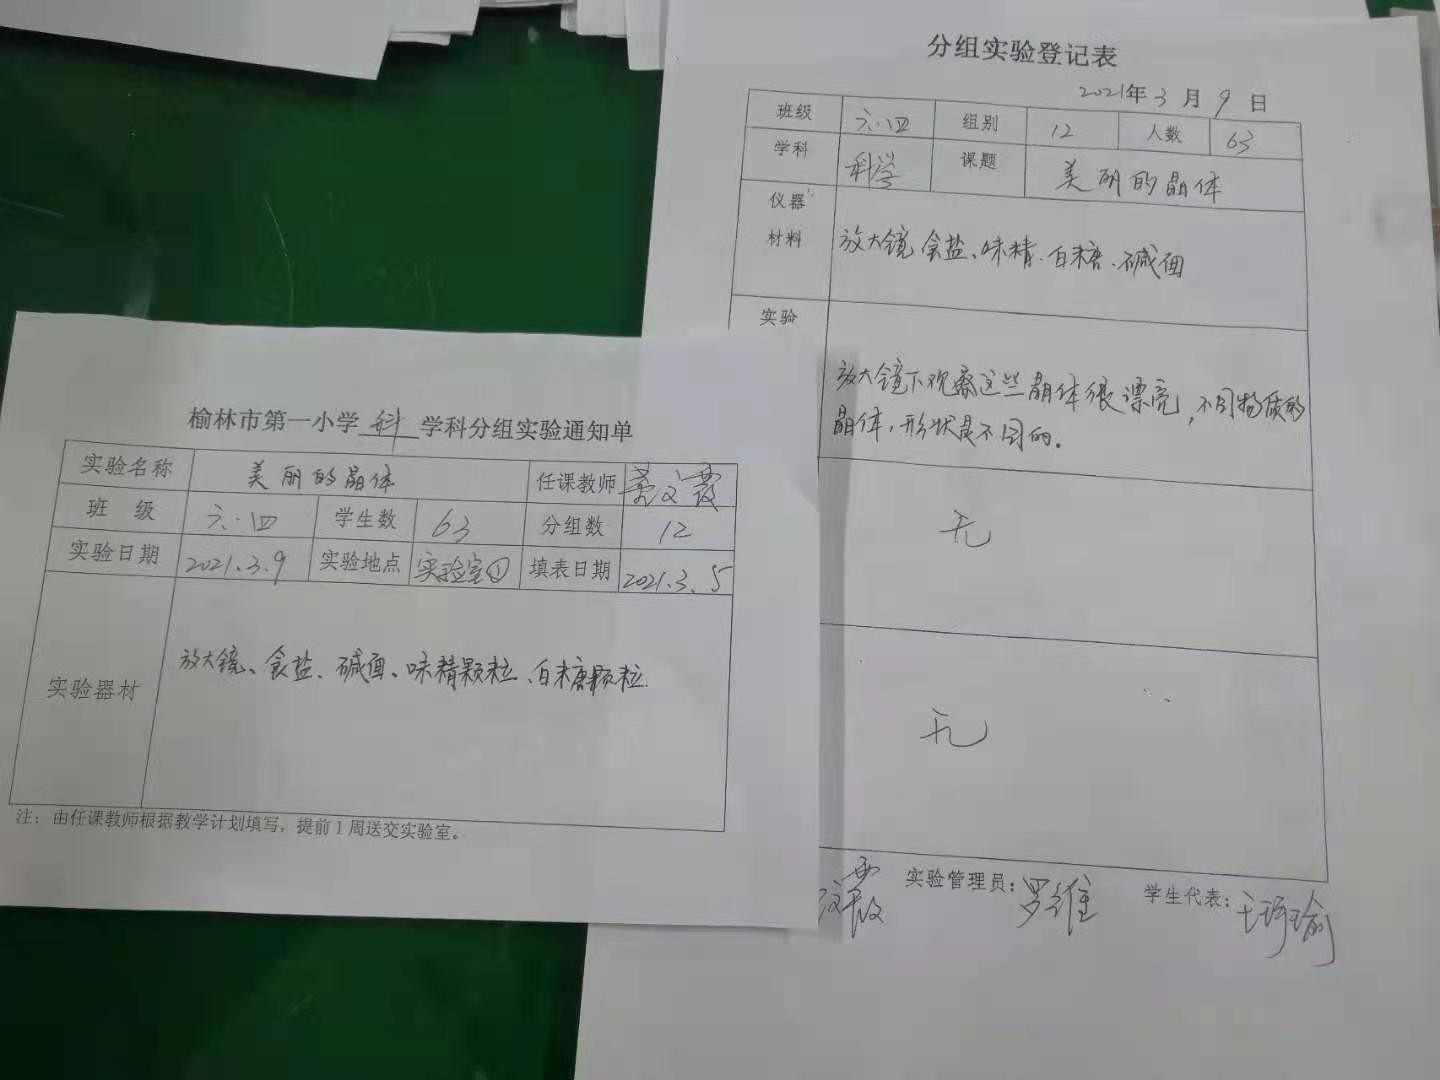 分组实验登记表
2021年3月9日
班级 六.四 组别 12 人数 63
学科 科学 课题 美丽的晶体
仪器
材料
放大镜 食盐、味精.白糖.碱面
实验
放大镜下观察这些晶体很漂亮,不同物质的
晶体,形状是不同的。
无
无
霞 实验管理员:罗维 学生代表:
榆林市第一小学 科 学科分组实验通知单
实验名称 美丽的晶体 任课教师
班 级 六.四 学生数 63 分组数 12
实验日期 2021.3.9 实验地点 实验室① 填表日期 2021.3.5
实验器材 放大镜、食盐、碱面、味精颗粒、白糖颗粒.
注:由任课教师根据教学计划填写,提前1周送交实验室。